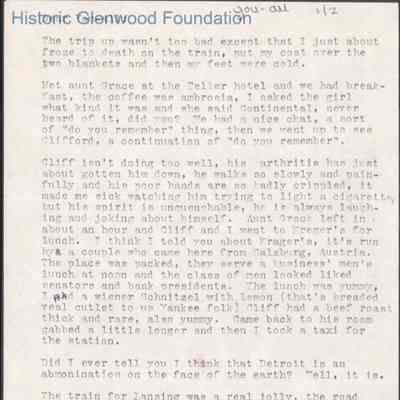 Historic Glenwood Foundation
you-all 1/2
The trip up wasn't too bad except that I just about
froze to death on the train, put my coat over the
two blankets and then my feet were cold.
Met aunt Grace at the Teller hotel and we had break-
fast, the coffee was ambrosia, I asked the girl
what kind it was and she said Continental, never
heard of it, did you? We had a nice chat, a sort
of "do you remember" thing, then we went up to see
Clifford, a continuation of "do you remember".
Cliff isn't doing too well, his arthritis has just
about gotten him down, he walks so slowly and pain-
fully and his poor hands are so badly crippled, it
made me sick watching him trying to light a cigarette,
but his spirit is unquenchable, he is always laugh-
ing and joking about himself. Aunt Grace left in
about an hour and Cliff and I went to Krager's for
lunch. I think I told you about Krager's, it's run
by a couple who came here from Salzburg, Austria.
The place was packed, they serve a business' men's
lunch at noon and the class of men looked liked
senators and bank presidents. The lunch was yummy,
I had a wiener Schnitzel with lemon (that's breaded
veal cutlet to us Yankee folk) Cliff had a beef roast
thick and rare, also yummy. Came back to his room
gabbed a little longer and then I took a taxi for
the station.
Did I ever tell you I think that Detroit is an
abmonination on the face of the earth? Well, it is.
The train for Lansing was a real jolly, the road